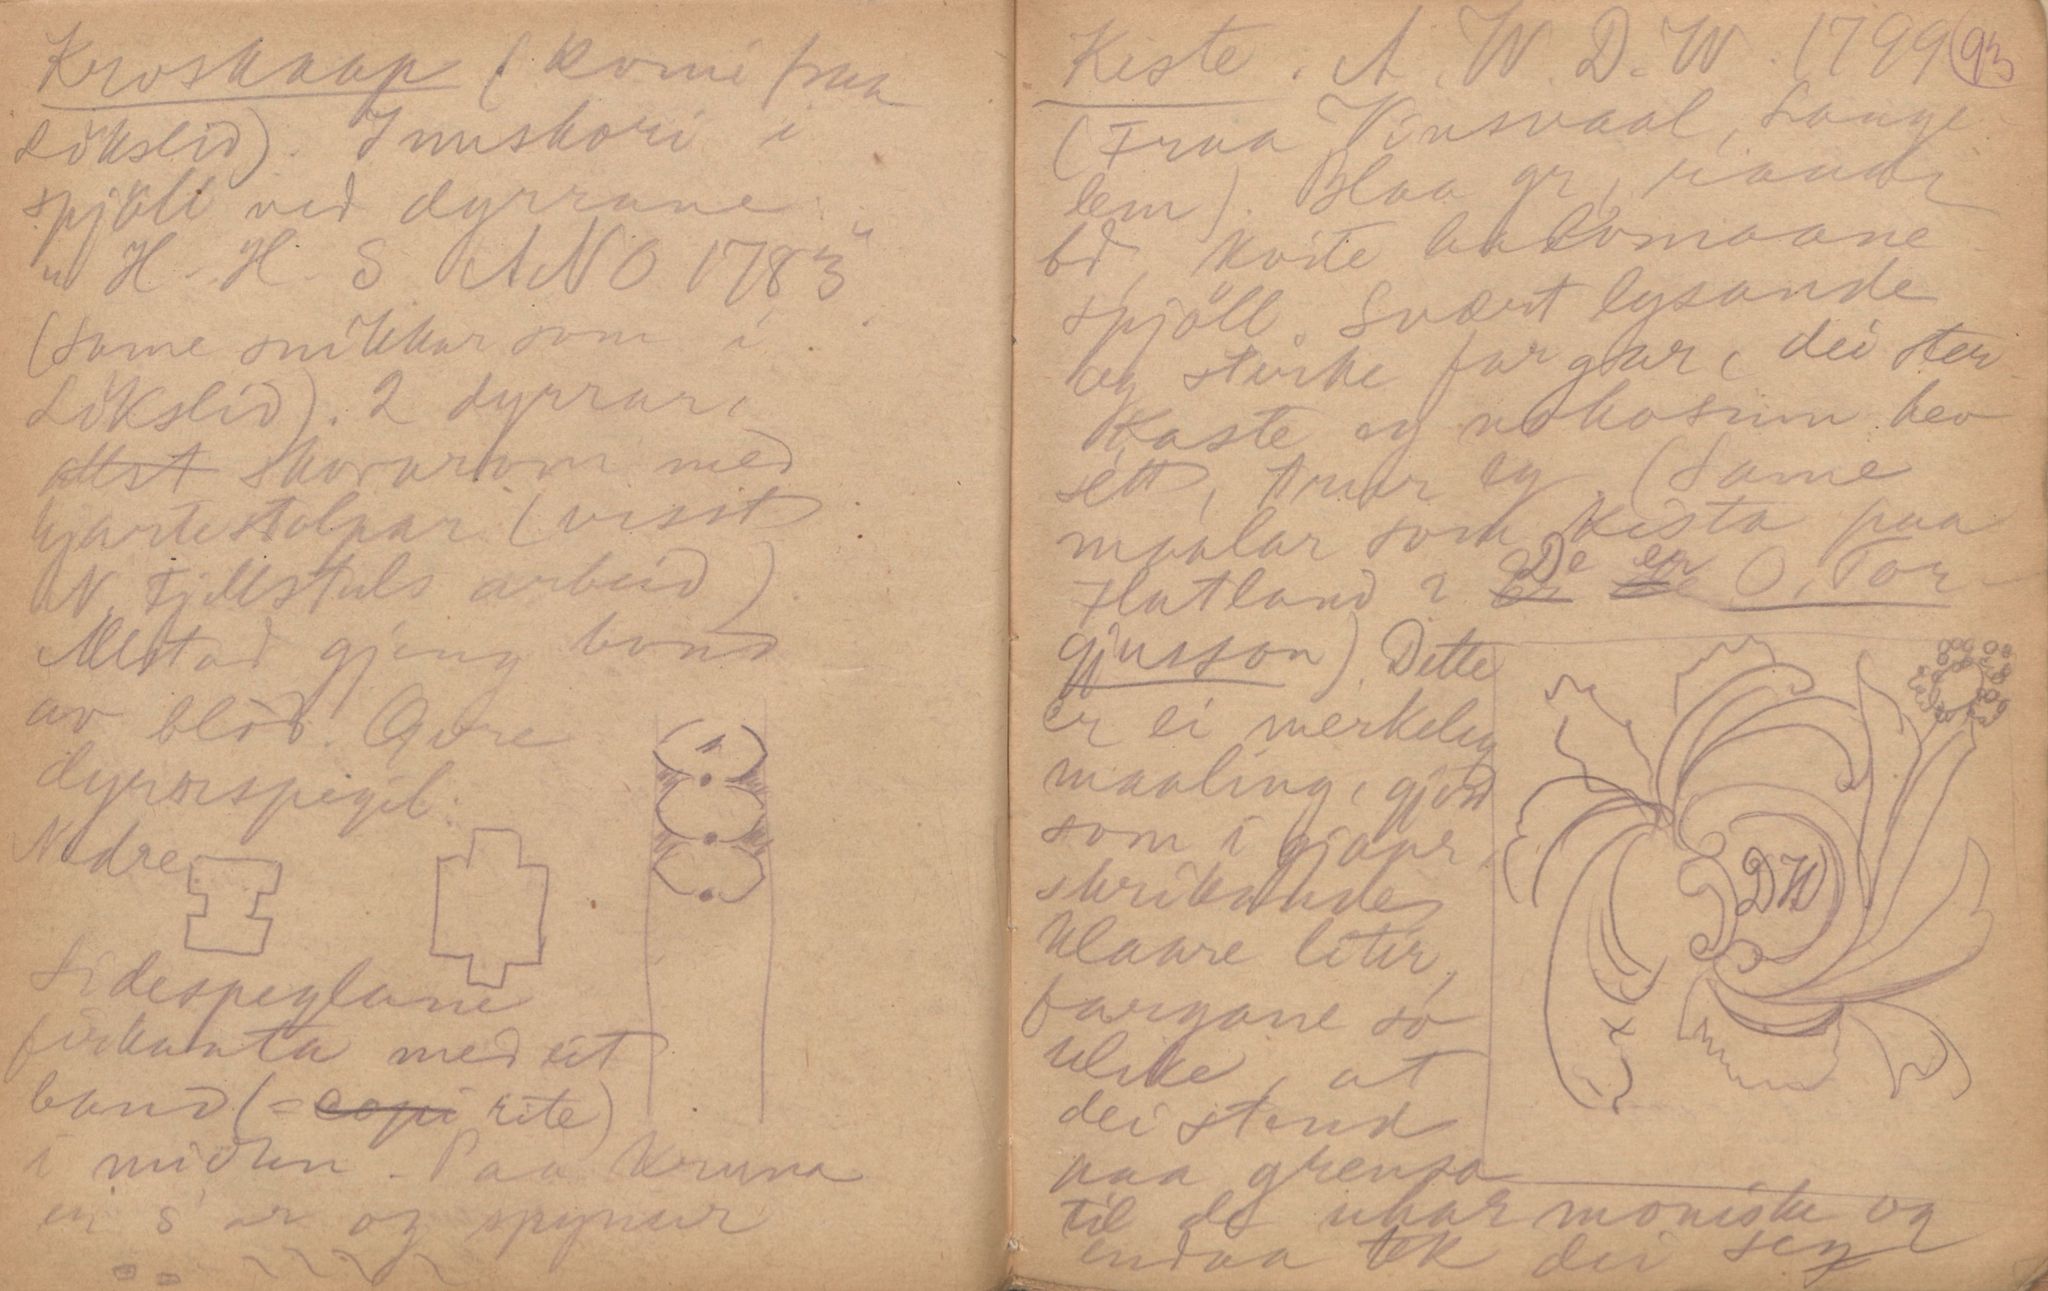 Kroskaap (kome fraa
Lökslid). Innskori i
spjöll ved dyrrane
" H. H. S ANO 1783"
(Same snikkar som i
Lökslid). 2 dyrrar,
skorarom med
hjartestolpar (visst
N. Fjellstuls arbeid).
Allstad gjeng bond
av blöd. Övre
dyrrspegil:
Nedre
Sidespeglane
firkanta med eit
band (= rite)
i midten. Paa Kruna
en S ar og
Kiste. A. W. D. W. 1799 93
(Fraa Vinsvaal, Lauge
lem). Blaa gr, raude
bd, kvite halvmaane
spjöll. Svært lysande
og sterke fargar, dei ster
kaste eg nokosinn hev
sett, trur eg. (Same
maalar som kista paa
Flatland? De er O. Tor-
gjusson). Dette
er ei merkeleg
maaling, gjord
som i gjaper
skrikande
klaare liter,
fargane so
ulike, at
dei stend
paa grensa
til de uharmoniske og
endaa tek dei seg
DW